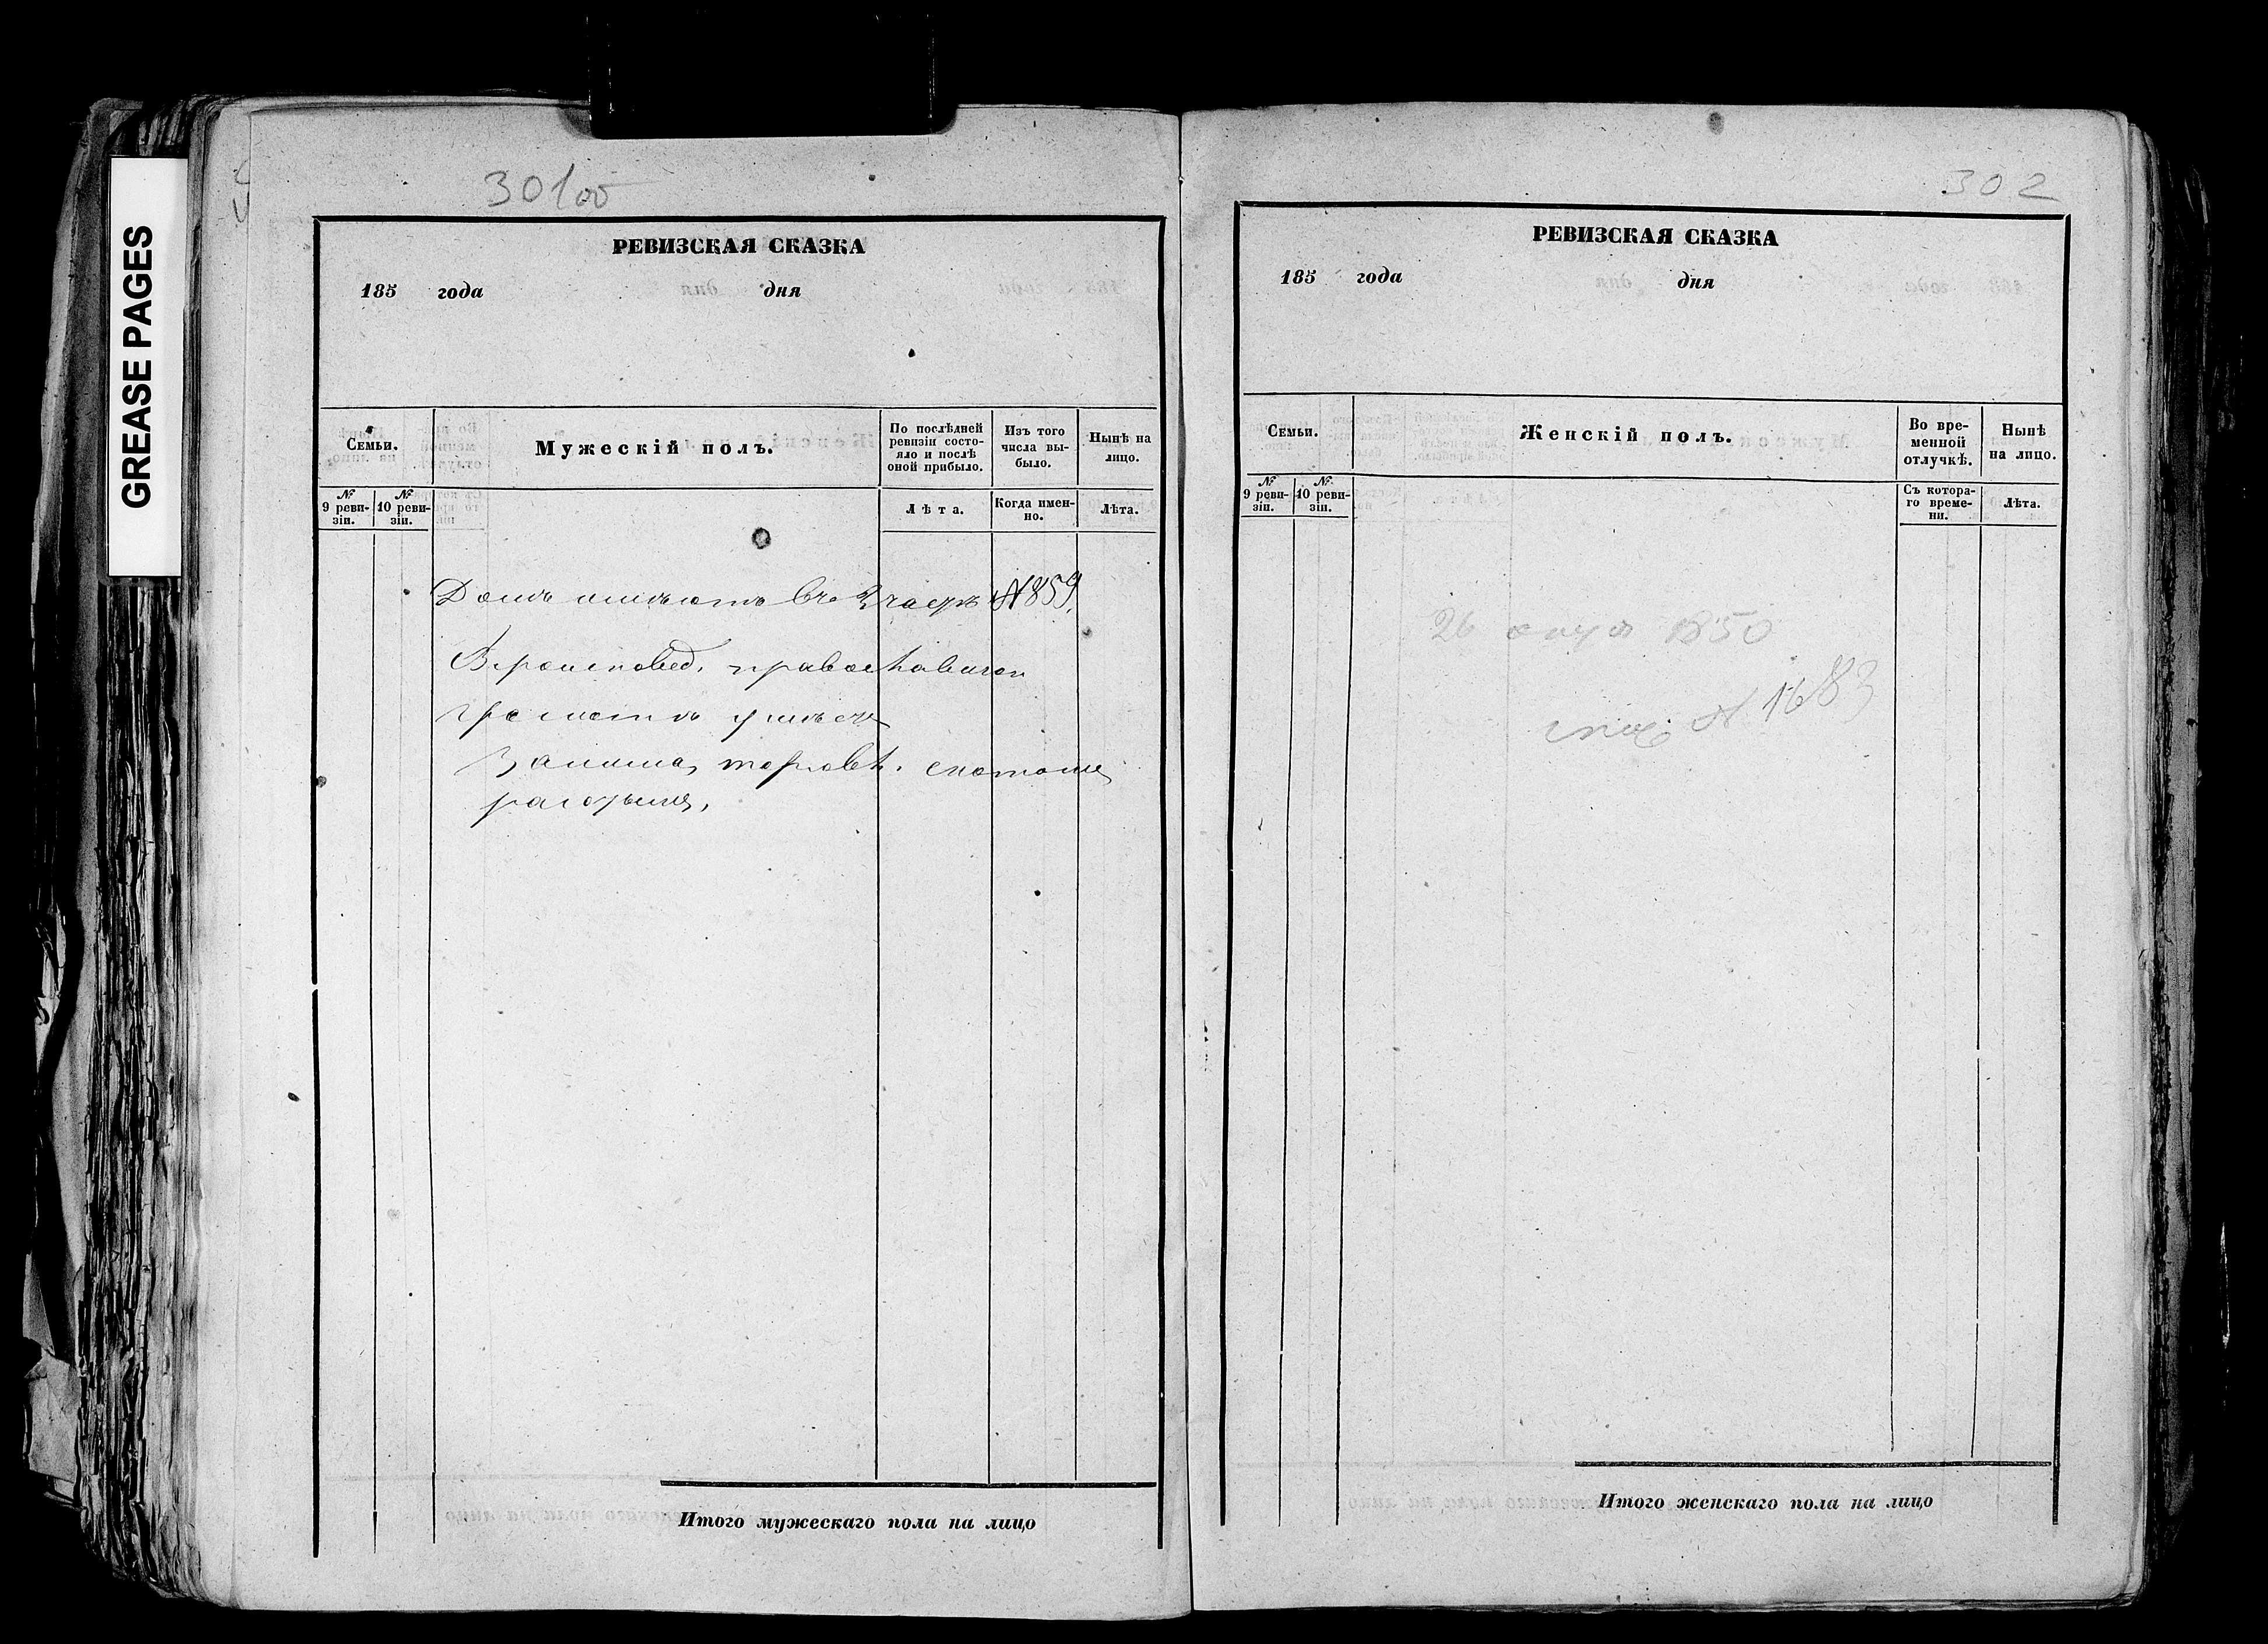 GREASE PAGES
301 об
РЕВИЗСКАЯ СКАЗКА
185 года дня
Семьи.
Мужескій полъ.
По послѣдней ревизіи состо-
яло и послѣ
оной прибыло.
Изъ того
числа вы-
было.
Нынѣ на
лицо.
№ 9 реви-
зіи.
№ 10 реви-
зіи.
Лѣта.
Когда имен-
но.
Лѣта.
Домъ имѣютъ въ 3 части №859.
Вѣроисповед. православнаго
грамотѣ умѣетъ
Занима. торговл. скотомъ
Итого мужескаго пола на лицо
302
РЕВИЗСКАЯ СКАЗКА
185 года дня
Семьи.
Женскій полъ.
Во вре-
менной
отлучкѣ.
Нынѣ
на лицо.
№ 9 реви-
зіи.
№ 10 реви-
зіи.
Съ котора-
го време-
ни.
Лѣта.
26 1850
№ 1683
Итого женскаго пола на лицо